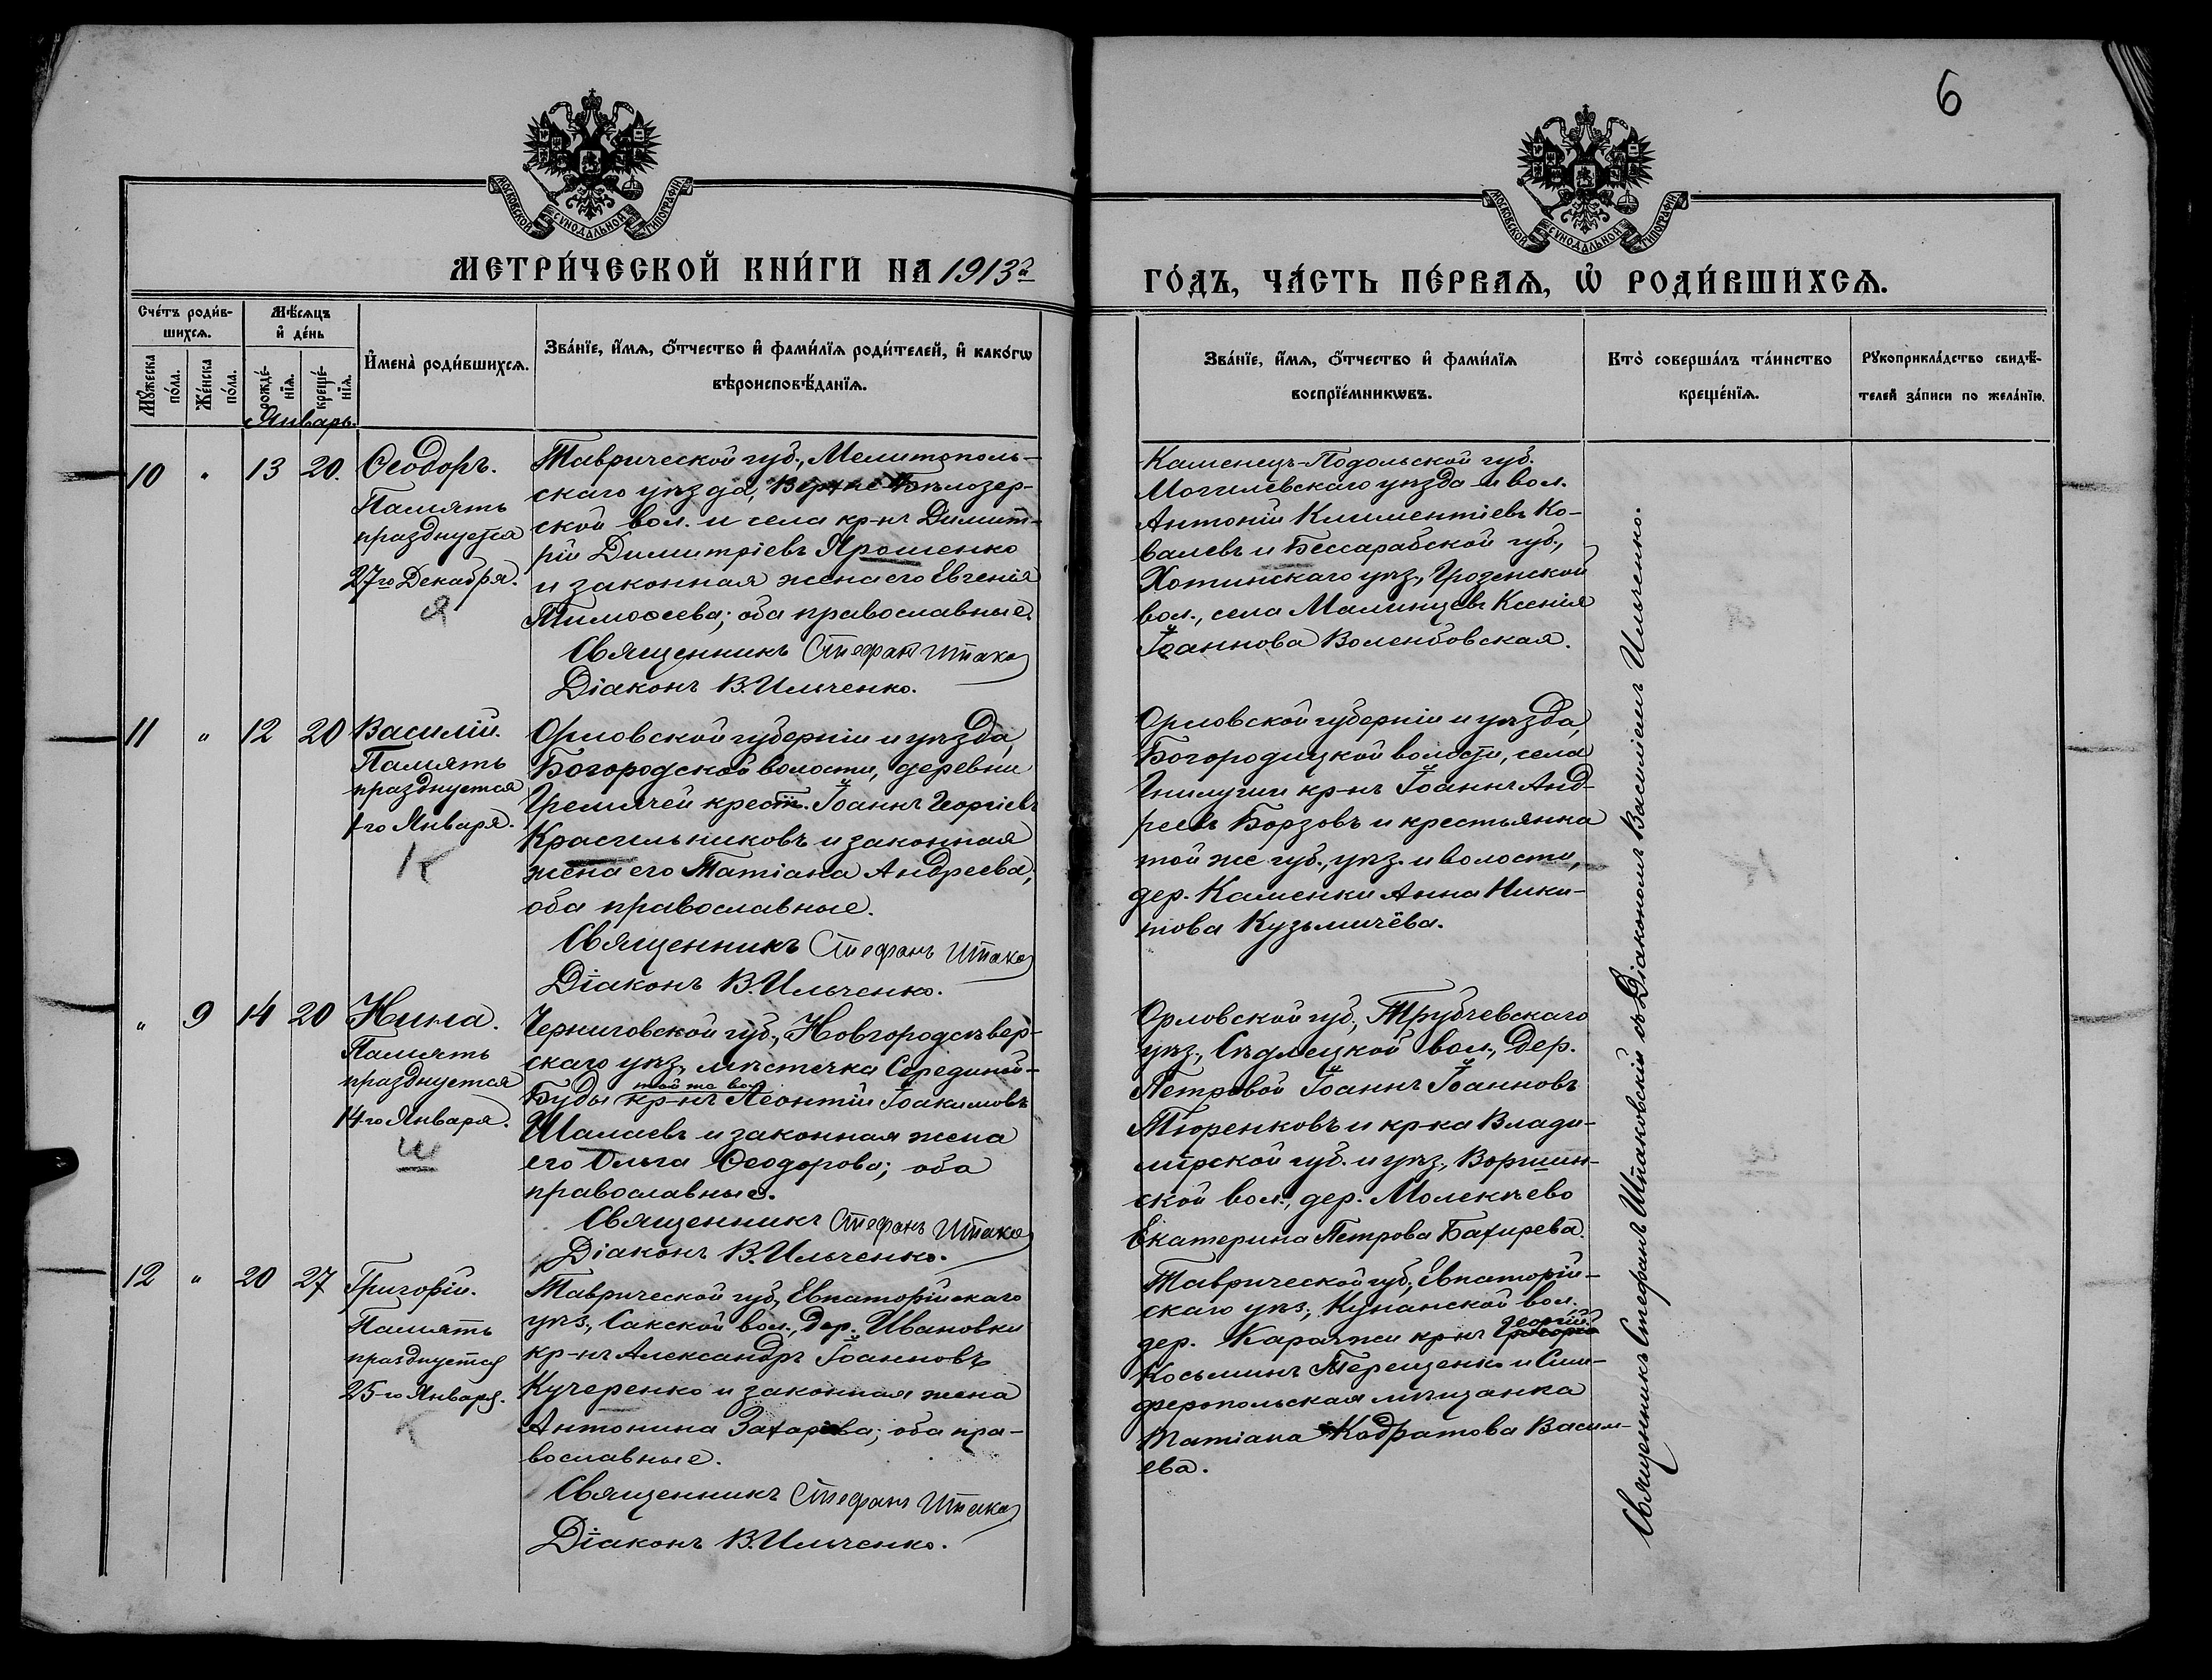 6
МОСКОВСКОЙ СѴНОДАЛЬНОЙ ТИПОГРАФІИ
МОСКОВСКОЙ СѴНОДАЛЬНОЙ ТИПОГРАФІИ
МЕТРИ́ЧЕСКОЙ КНИ́ГИ НА 1913й
ГО́ДЪ, ЧА́СТЬ ПЕ́РВАѦ, Ѡ҆ РОДИ́ВШИХСѦ.
Сче́тъ роди́в-
шихсѧ.
Мꙋ́жеска по́ла.
Же́нска по́ла.
Мѣ́сѧцъ
и҆ де́нь
рожде́-нїѧ.
креще́-нїѧ.
И҆мена̀ роди́вшихсѧ.
Зва́нїе, и҆́мѧ, ѻ҆́тчество и҆ фами́лїѧ роди́телей, и҆ како́гѡ
вѣроисповѣ́данїѧ.
Зва́нїе, и҆́мѧ, ѻ҆́тчество и҆ фами́лїѧ
воспрїе́мникѡвъ.
Кто̀ соверша́лъ та́инство
креще́нїѧ.
Рꙋкоприкла́дство свидѣ́-
телей за́писи по жела́нїю.
Январь.
10 " 13 20.
Ѳеодоръ.
Память
празднуется
27го Декабря.
Я
Таврической губ., Мелитополь-
скаго уѣзда, Верхне-Бѣлозер-
ской вол. и села кр-нъ Димит-
рій Димитріевъ Ярошенко
и законная жена его Евгенія
Тимоѳеева; оба православные.
Священникъ Стефан Штако
Діаконъ В. Ильченко.
Каменецъ-Подольской губ.
Могилевскаго уѣзда и вол.
Антоній Климентіевъ Ко-
валевъ и Бессарабской губ.,
Хотинскаго уѣз., Грозенской
вол., села Малинцевъ Ксенія
Іоаннова Воленбовская.
11 " 12 20
Василій.
Память
празднуется
1-го Января.
К
Орловской губерніи и уѣзда,
Богородской волости, деревни
Гремячей крест. Іоаннъ Георгіевъ
Красильниковъ и законная
жена его Татіана Андреева;
оба православные.
Священникъ Стефанъ Штако
Діаконъ В. Ильченко.
Орловской губерніи и уѣзда,
Богородицкой волости, села
Гнилуши кр-нъ Іоаннъ Анд-
реевъ Борзовъ и крестьянка
той же губ., уѣз. и волости,
дер. Каменки Анна Ники-
това Кузьмичёва.
" 9 14 20
Нина.
Память
празднуется
14-го Января.
Ш
Черниговской губ., Новгородсѣвер-
скаго уѣз., мѣстечка Серединой-
той же вол.
Буды кр-нъ Леонтій Іоакимовъ
Шалаевъ и законная жена
его Ольга Ѳеодорова; оба
православные.
Священникъ Стефанъ Штако
Діаконъ В. Ильченко.
Орловской губ., Трубчевскаго
уѣз., Сѣдлецкой вол., дер.
Петровой Іоаннъ Іоанновъ
Тюренковъ и кр-ка Влади-
мірской губ. и уѣз., Воршин-
ской вол., дер. Молекѣево
Екатерина Петрова Бахирева.
12 " 20 27
Григорій.
Память
празднуется
25-го Января.
К
Таврической губ., Евпаторійскаго
уѣз., Сакской вол., дер. Ивановки
кр-нъ Александръ Іоанновъ
Кучеренко и законная жена
Антонина Захарова; оба пра-
вославные.
Священникъ Стефанъ Штако
Діаконъ В. Ильченко.
Таврической губ., Евпаторій-
скаго уѣз., Кунанской вол.
Георгій
дер. Карачжи кр-нъ
Косьминъ Терещенко и Сим-
феропольская мѣщанка
Татіана Кодратова Василь-
ева.
Священникъ Стефанъ Штаковскій съ Діакономъ Василіемъ Ильченко.